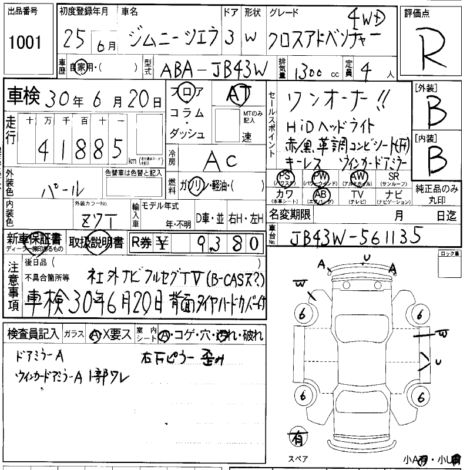 出品番号 初度登録年月 車名 ドア 形状 グレード 評価点
1001 25年6月 ジムニーシエラ 3 W 4WD クロスアドベンチャー R
車歴 自家用・( ) 型式 ABA-JB43W 排気量 1300cc 定員 4人
車検 30年6月20日 フロア AT
コラム
ダッシュ MTのみ記入 速
走行 十万 万 千 百 十 一
41885 km
冷房 AC
外装色 パール 色替車は色替と記入
燃料 ガソリン・軽油・( )
内装色 外装カラーNo. Z7T
輸入車 モデル年式 年・不明 D車・並 右H・左H
セールスポイント
ワンオーナー!!
HiDヘッドライト
キーレス ウインカードアミラー
PS PW AW SR
(パワステ) (パワーウインド) (アルミ) (サンルーフ)
カワ AB TV ナビ
(本革シート) (エアバッグ) (テレビ) (ナビゲーション)
純正品のみ丸印
[外装] B
[内装] B
名変期限 月 日迄
新車保証書 取扱説明書 R券 ¥ 9380
車台No. JB43W-561135
注意事項 後日品( )
不具合箇所等 社外ナビフルセグTV(B-CASヌケ?)
車検30年6月20日 背面タイヤハードカバーキズ
ロック番号
検査員記入 ガラス A・X要ス 内シート A・コゲ・穴・汚れ・破れ
ドアミラーA 右右ピラー歪み
ウインカードアミラーA 1部ワレ
A U A
W
6 6
W
U
6 6
有
スペア
小A有・小U有